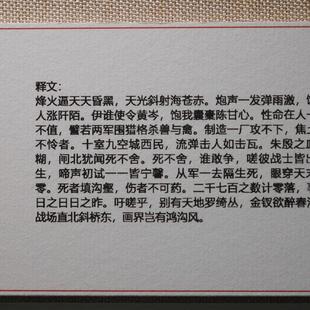 释文：
烽火逼天天昏黑，天光斜射海苍赤。炮声一发弹雨激，
人涨阡陌。伊谁使令黄岑，饱我囊橐陈甘心。性命在人一
不值，譬若两军围猎格杀兽与禽。制造一厂攻不下，焦土
不怜者。十室九空城西民，流弹击人如击瓦。朱殷之血
糊，闸北犹闻死不舍。死不舍，谁敢争，嗟彼战士皆
生，啼声初试一一皆宁馨。从军一去隔生死，眼穿天末
零。死者填沟壑，伤者不可药。二千七百之数计零落，
日之日日之昨。吁嗟乎，别有天地罗绮丛，金钗欲醉春
战场直北斜桥东，画界岂有鸿沟风。